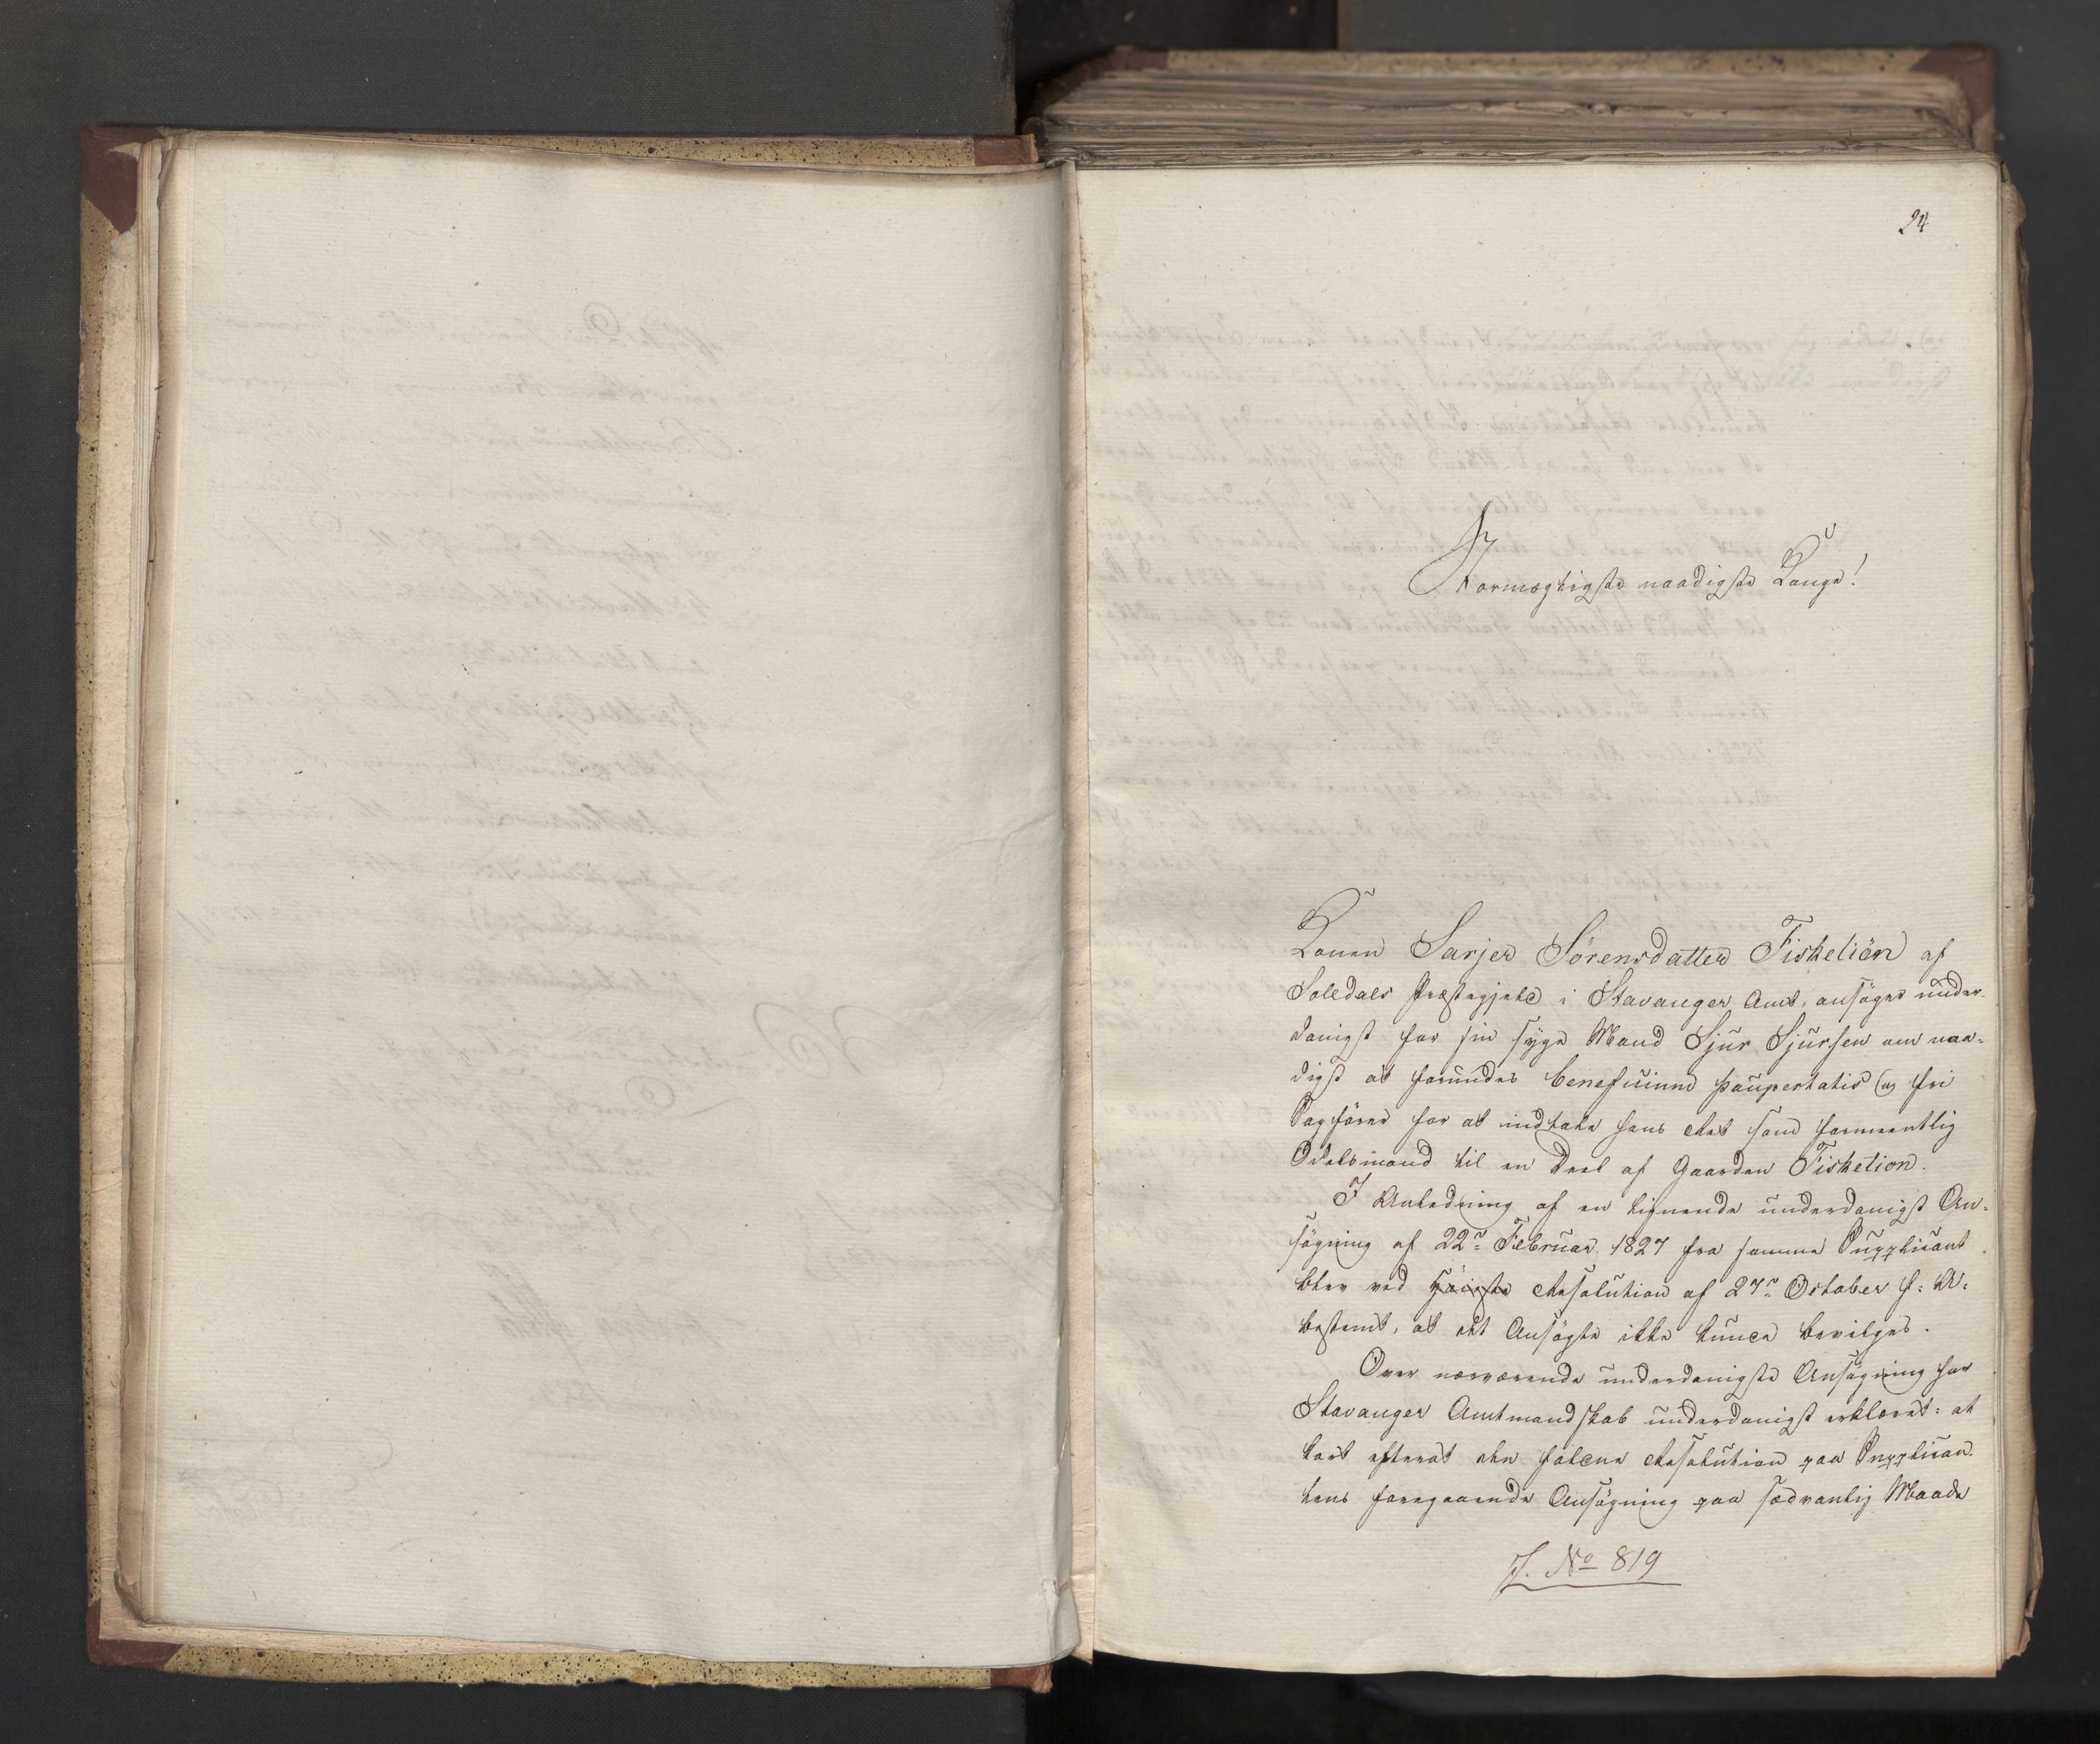 24
Stormægtigste naadigste Konge!
Konen Sarjer Sörensdatter Fiskeliön af
Soledals Præstegjeld i Stavanger Amt, ansöger under-
danigst for sin syge Mand Sjur Sjursen om naa-
digst at forundes beneficium paupertatis og fri
Sagförer for at indtale hans Ret som formeentlig
Odelsmand til en Deel af Gaarden Fiskelion.
I Anledning af en lignende underdanigst An-
sögning af 22r Februar 1827 fra samme Supplicant
blev ved Resolution af 27r October s: A:
bestemt, at det Ansögte ikke kunde bevilges.
Over nærværende underdanigste Ansögning har
Stavanger Amtmandskab underdanigst erklæret: at
kort efterat den faldne Resolution paa Supplican-
tens foregaaende Ansögning paa sædvanlig Maade
J. No 819